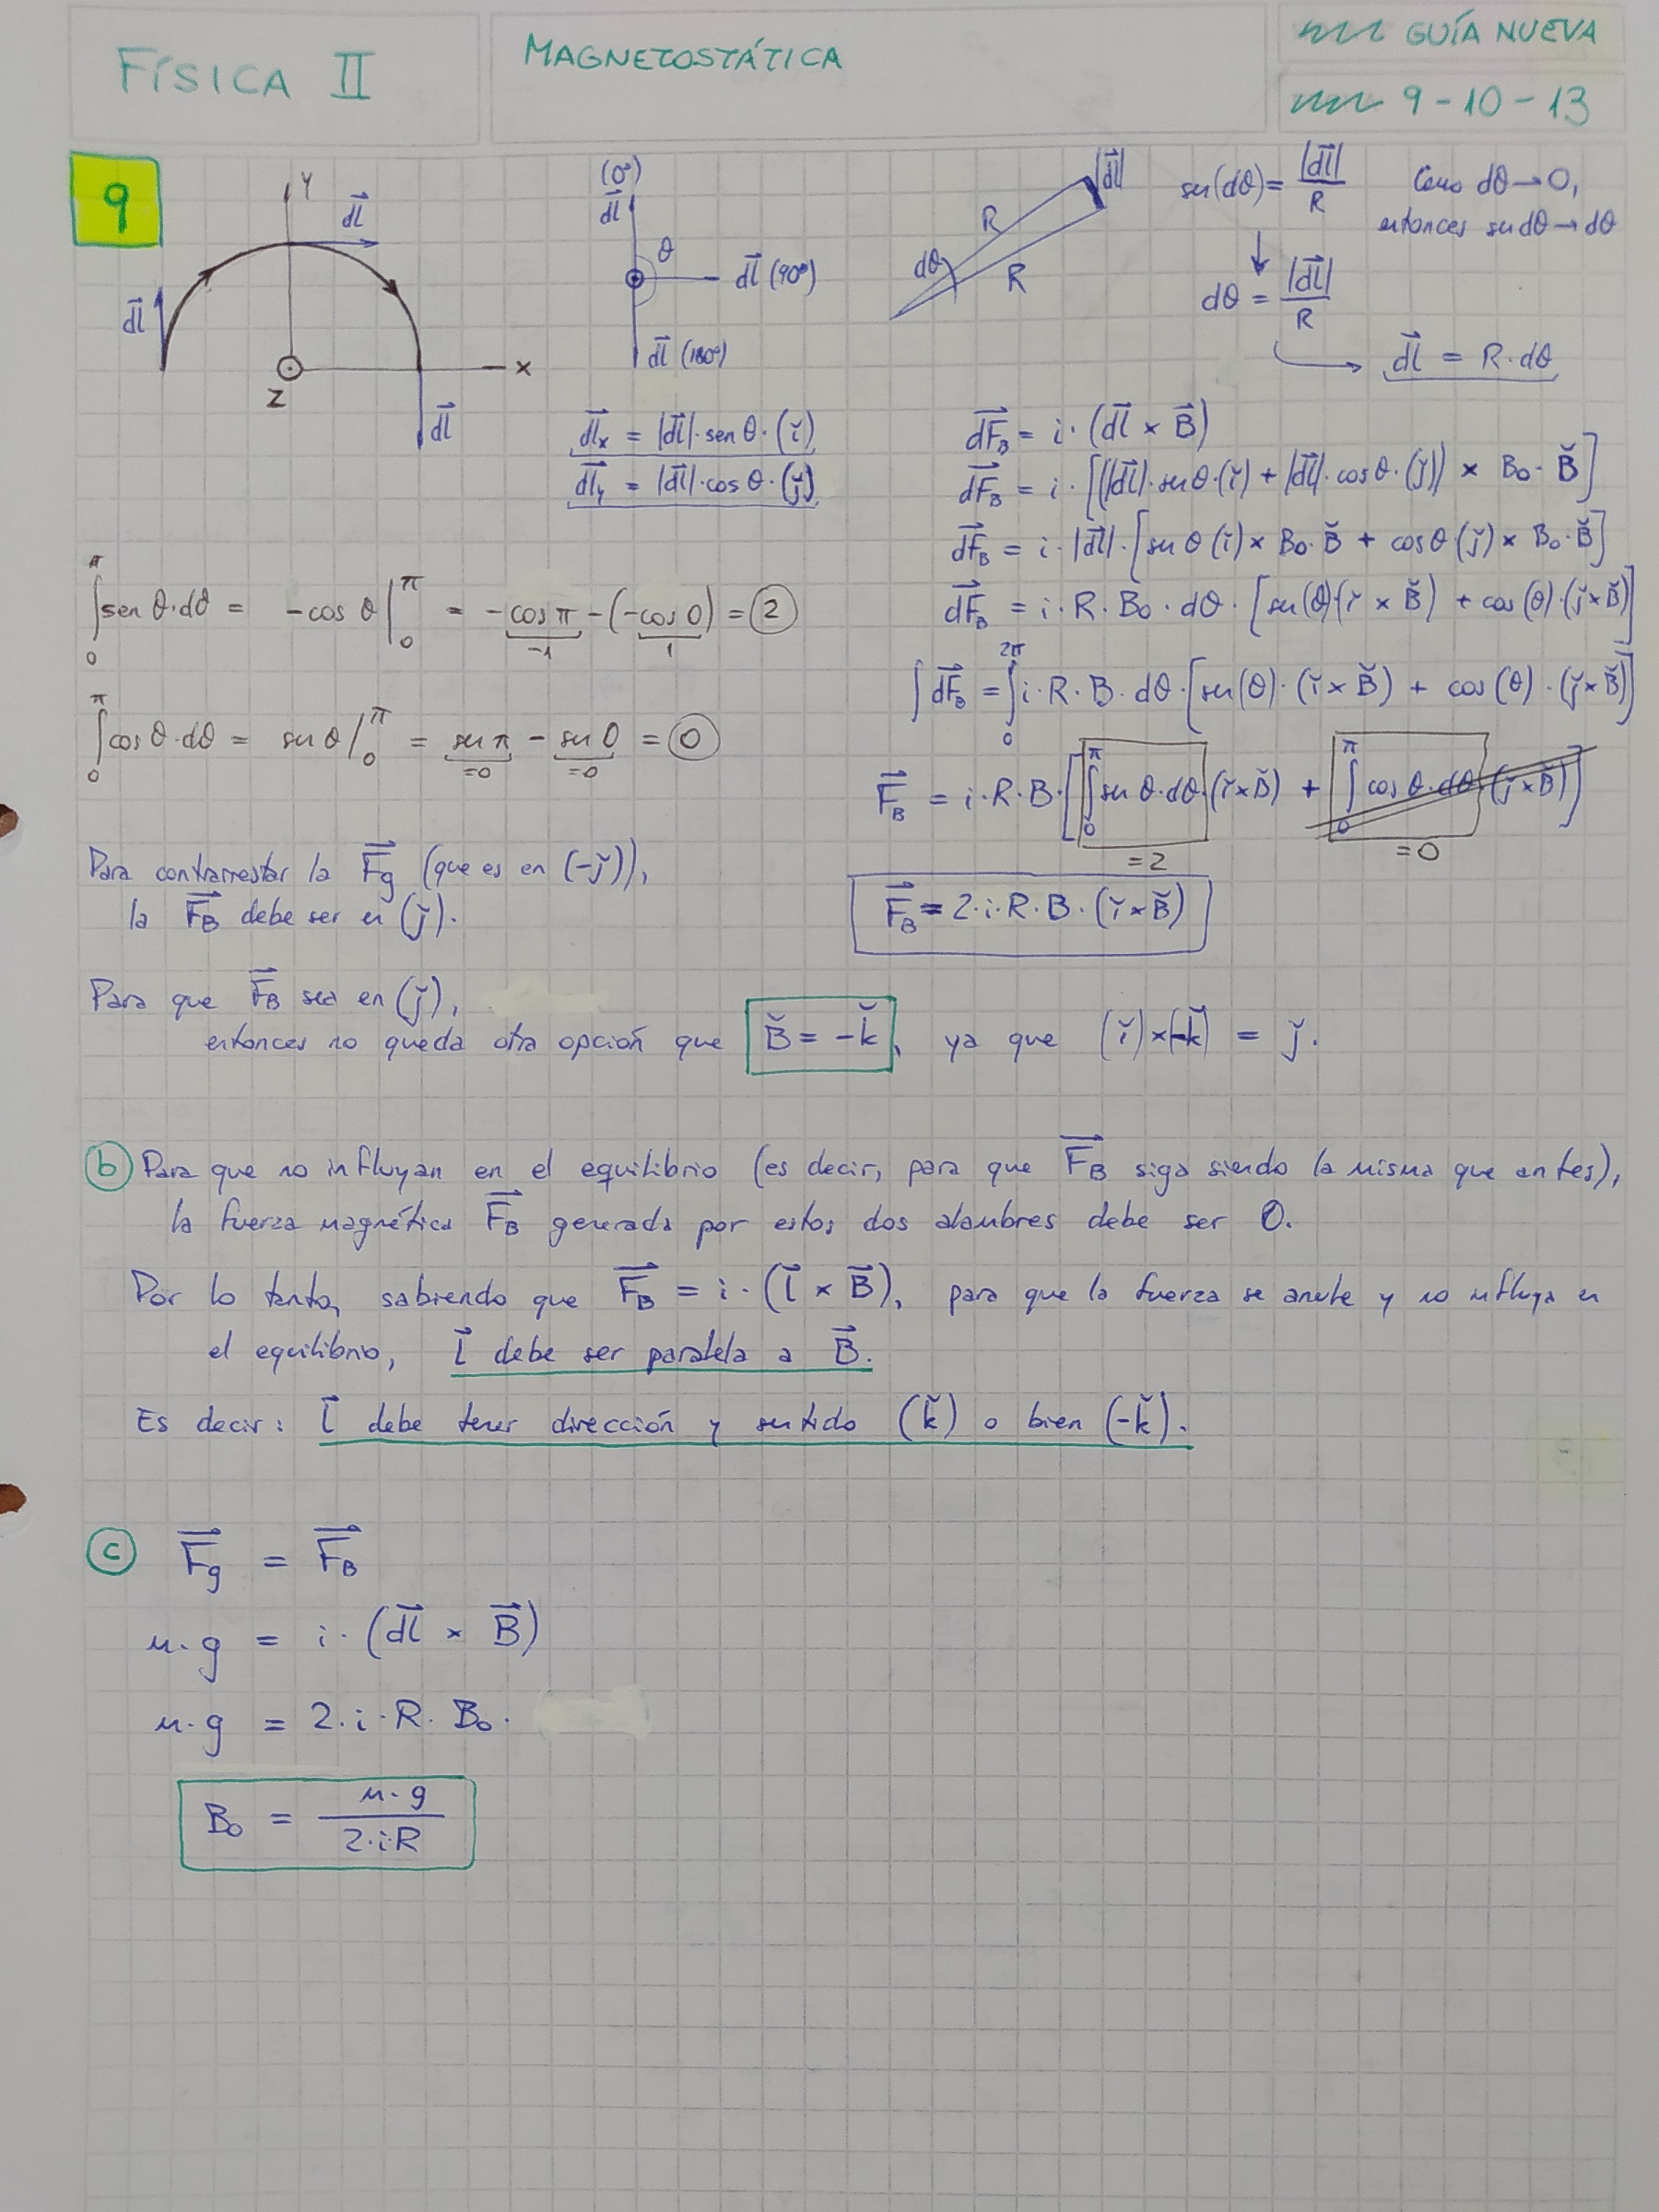 FÍSICA II
MAGNETOSTÁTICA
GUÍA NUEVA
9-10-13
9
Y
dl
dl
X
Z
dl
(0°)
dl
θ
dl (90°)
dl (180°)
|dl|
R
dθ
R
sen(dθ) = |dl| / R
Como dθ → 0,
entonces sen dθ → dθ
dθ = |dl| / R
dl = R·dθ
dlx = |dl|·sen θ·(ǐ)
dly = |dl|·cos θ·(ǰ)
dF_B = i·(dl × B)
dF_B = i·[(|dl|·sen θ·(ǐ) + |dl|·cos θ·(ǰ)) × B₀·B̌]
dF_B = i·|dl|·[sen θ (ǐ) × B₀·B̌ + cos θ (ǰ) × B₀·B̌]
dF_B = i·R·B₀·dθ·[sen(θ)(ǐ × B̌) + cos(θ)·(ǰ × B̌)]
∫dF_B = ∫₀^2π i·R·B·dθ·[sen(θ)·(ǐ × B̌) + cos(θ)·(ǰ × B̌)]
F_B = i·R·B·[∫₀^π sen θ·dθ·(ǐ × B̌) + ∫₀^π cos θ·dθ·(ǰ × B̌)]
=2
=0
F_B = 2·i·R·B·(ǐ × B̌)
∫₀^π sen θ·dθ = -cos θ |₀^π = -cos π - (-cos 0) = 2
-1
1
∫₀^π cos θ·dθ = sen θ |₀^π = sen π - sen 0 = 0
=0
=0
Para contrarrestar la Fg (que es en (-ǰ)),
la F_B debe ser en (ǰ).
Para que F_B sea en (ǰ),
entonces no queda otra opción que B̌ = -ǩ, ya que (ǐ)×(-ǩ) = ǰ.
b Para que no influyan en el equilibrio (es decir, para que F_B siga siendo la misma que antes),
la fuerza magnética F_B generada por estos dos alambres debe ser 0.
Por lo tanto, sabiendo que F_B = i·(l × B), para que la fuerza se anule y no influya en
el equilibrio, l debe ser paralela a B.
Es decir: l debe tener dirección y sentido (ǩ) o bien (-ǩ).
c Fg = F_B
m·g = i·(dl × B)
m·g = 2·i·R·B₀.
B₀ = m·g / 2·i·R